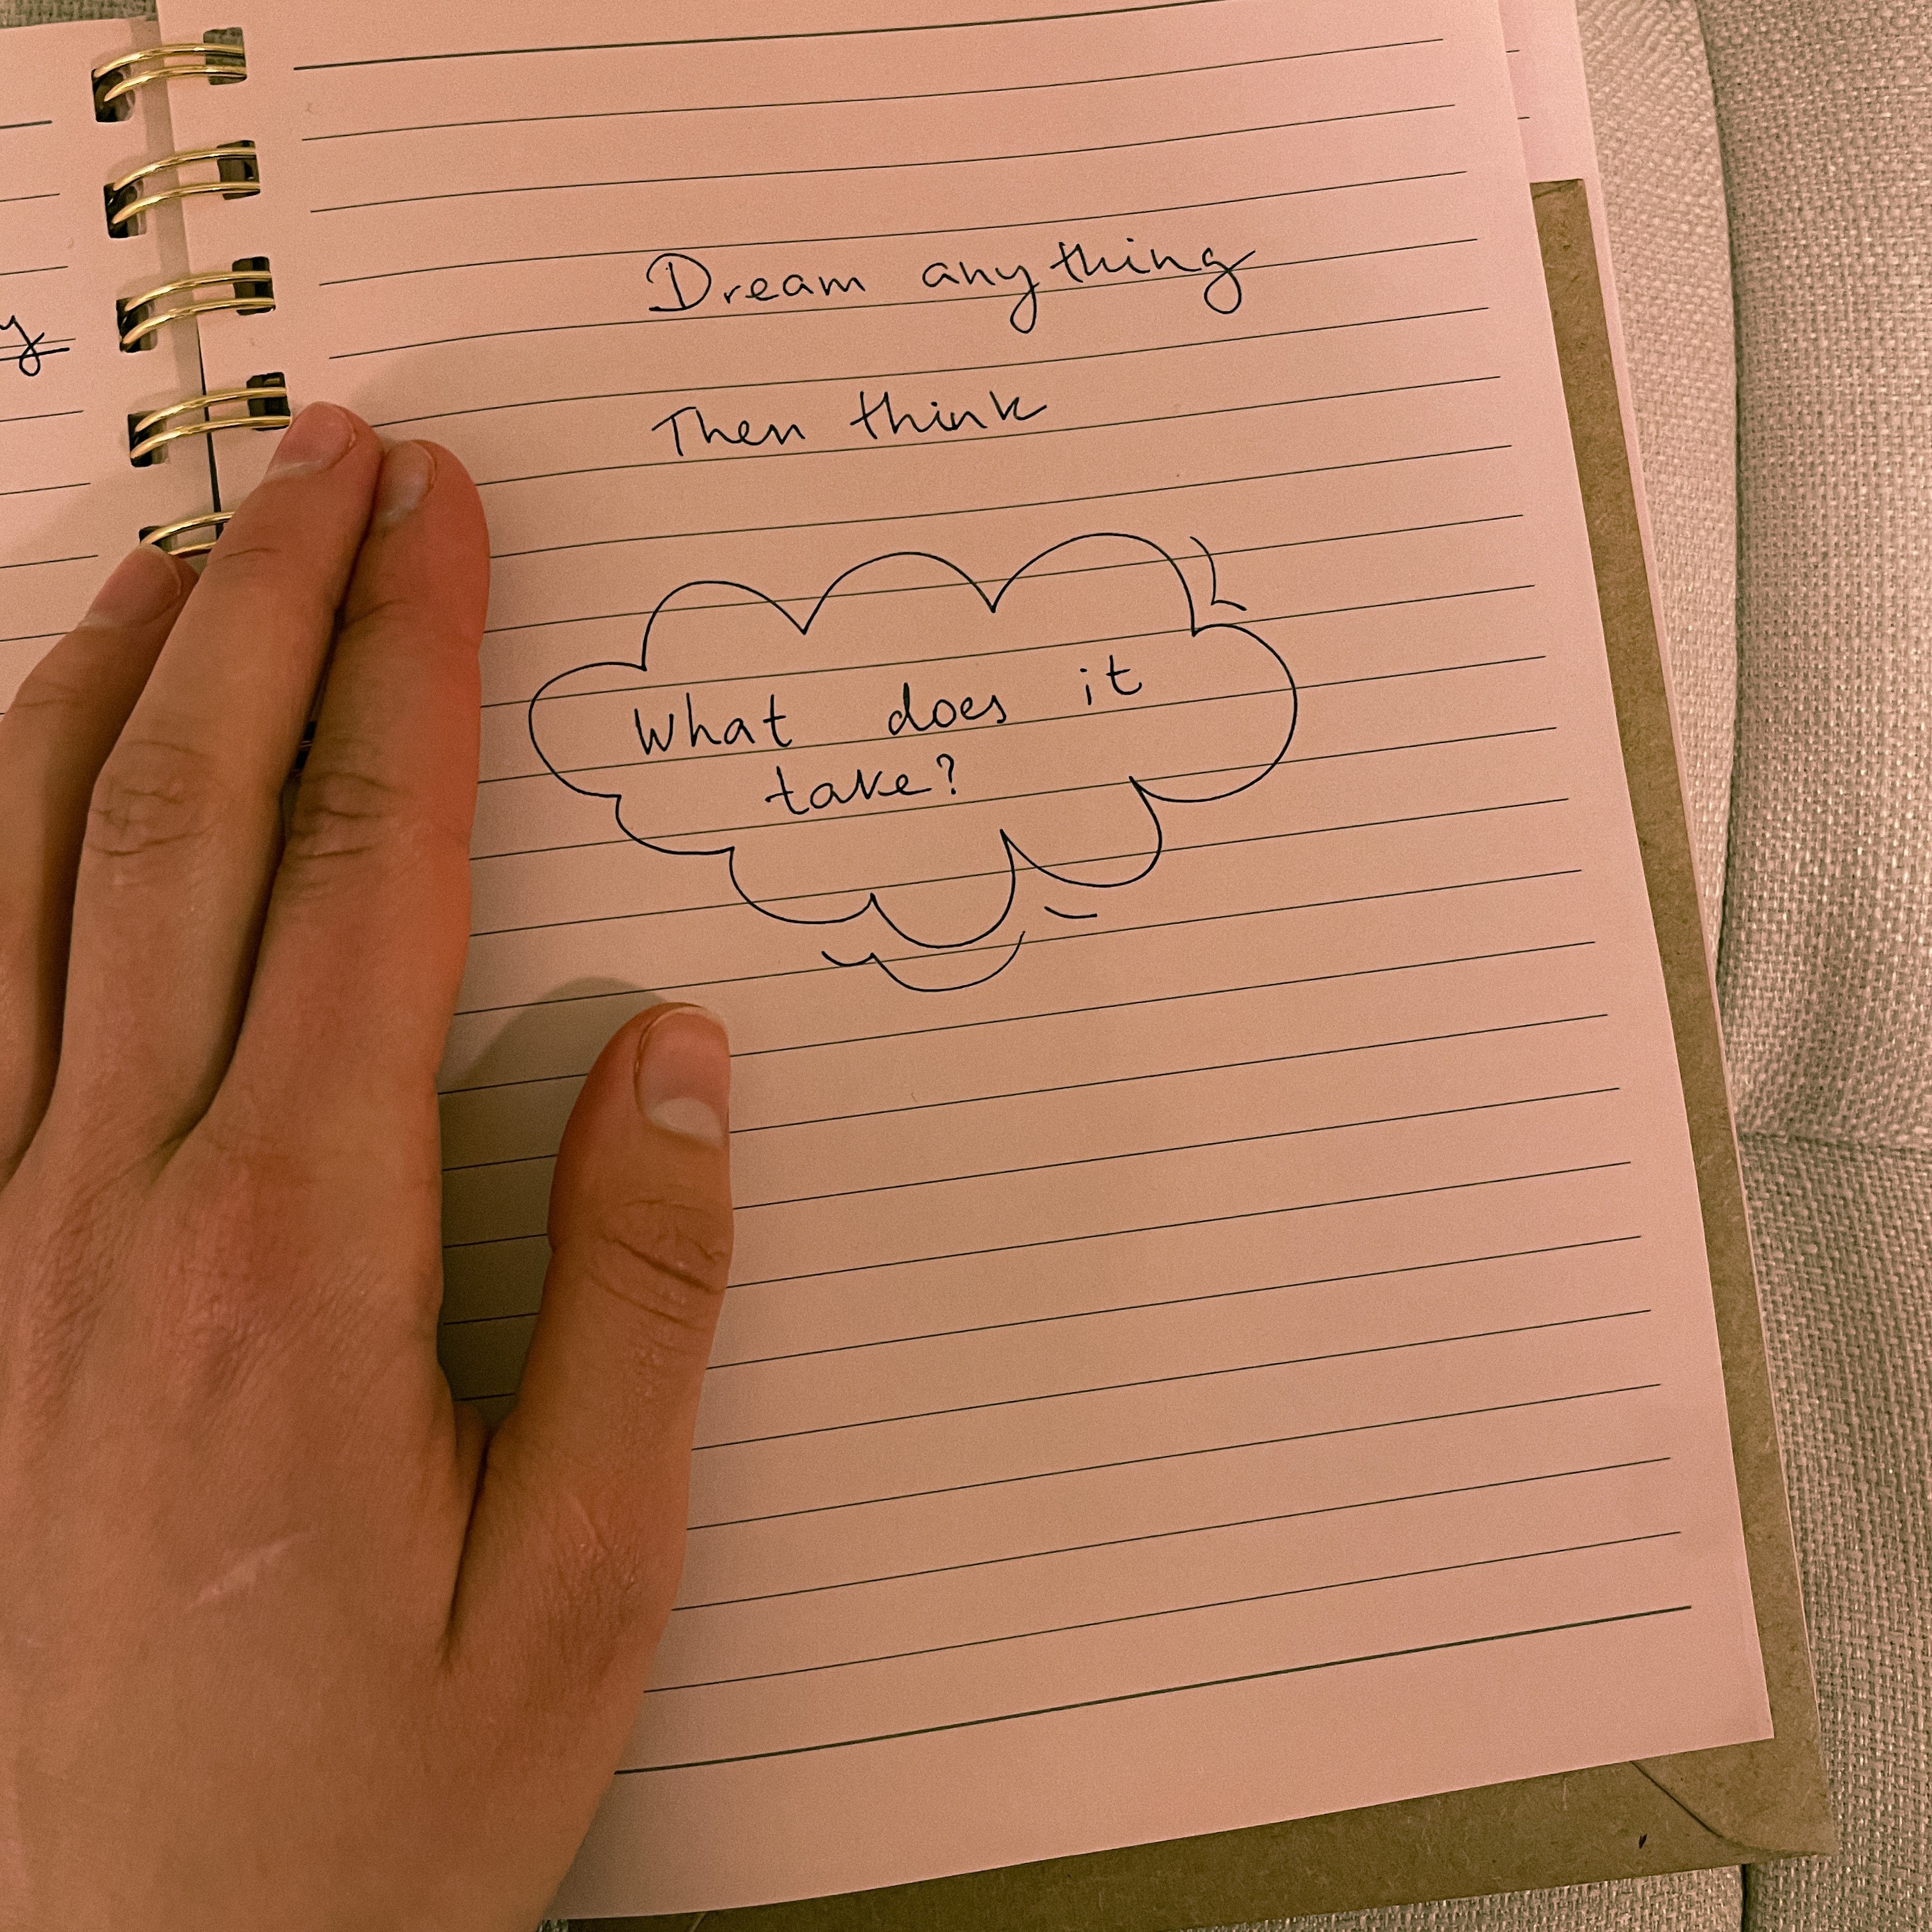 y
Dream anything
Then think
What does it
take?